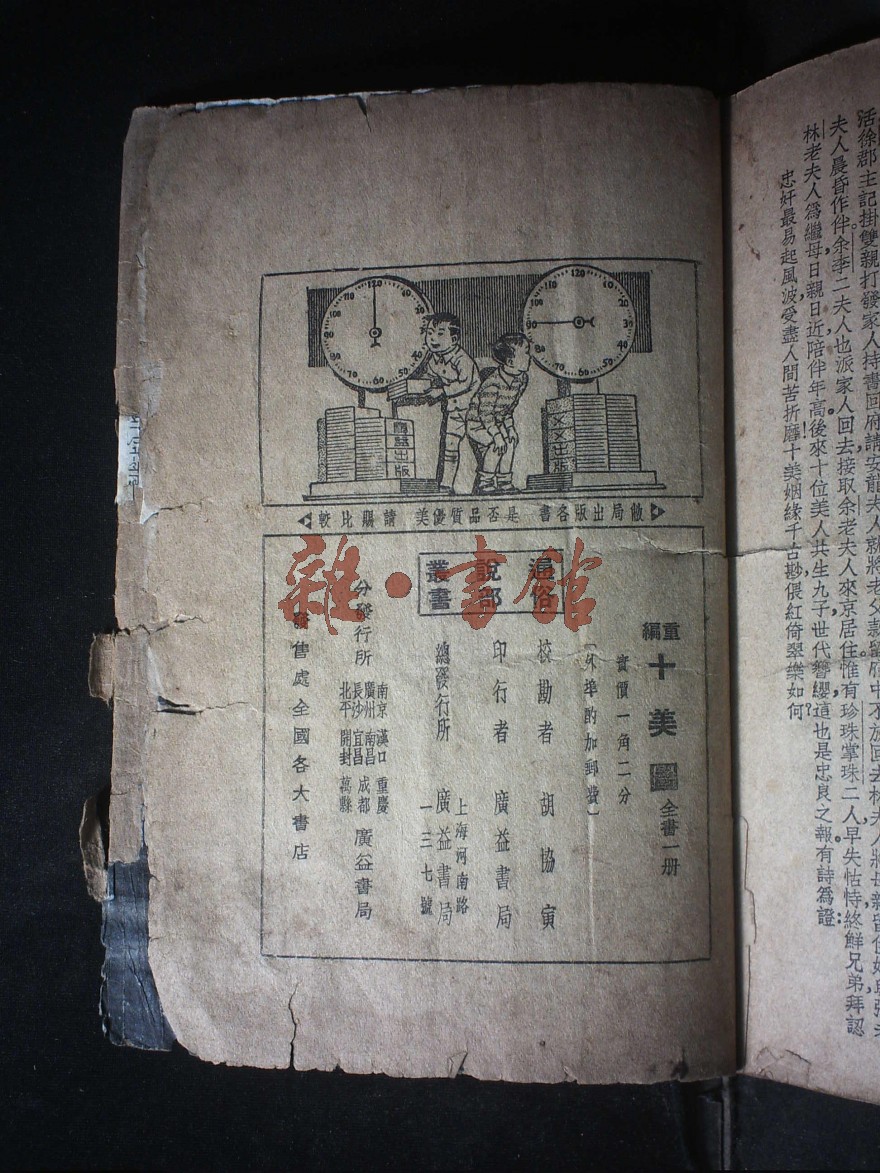 活徐郡主記掛雙親打發家人持書回府請安龍夫人就將老父
夫人晨昏作伴余李二夫人也派家人回去接取余老夫人來京居住惟有珍珠掌珠二人早失怙恃終鮮兄弟拜認
林老夫人爲繼母日親日近陪伴年高後來十位美人共生九子世代簪纓這也是忠良之報有詩爲證:
忠奸最易起風波,受盡人間苦折磨!十美姻緣千古尠,偎紅倚翠樂如何?
120 110 100 90 80 70 60 50 40
120 110 100 90 80 70 60 50 40 30 20
廣益出版
××出版
敝局出版各書 是否品質優美 請賜比較
重編 十美圖 全書一册
實價一角二分
(外埠酌加郵費)
通俗說部叢書
校勘者 胡協寅
印行者 廣益書局
總發行所 上海河南路一三七號 廣益書局
分發行所 南京 漢口 重慶 廣州 南昌 成都 長沙 宜昌 萬縣 北平 開封 廣益書局
發售處全國各大書店
雜·書館